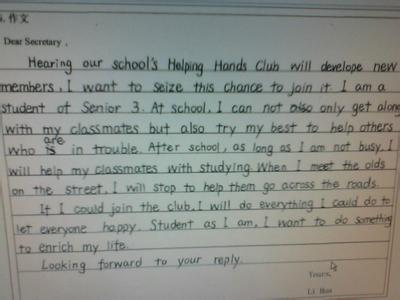 i. 作文
Dear Secretary,
Hearing our school's Helping Hands Club will develope new
members, I want to seize this chance to join it. I am a
student of Senior 3. At school, I can not only get along
with my classmates but also try my best to help others
who are in trouble. After school, as long as I am not busy, I
will help my classmates with studying. When I meet the olds
on the street, I will stop to help them go across the roads.
If I could join the club, I will do everything I could do to
let everyone happy. Student as I am, I want to do something
to enrich my life.
Looking forward to your reply.
Yours,
Li Hua